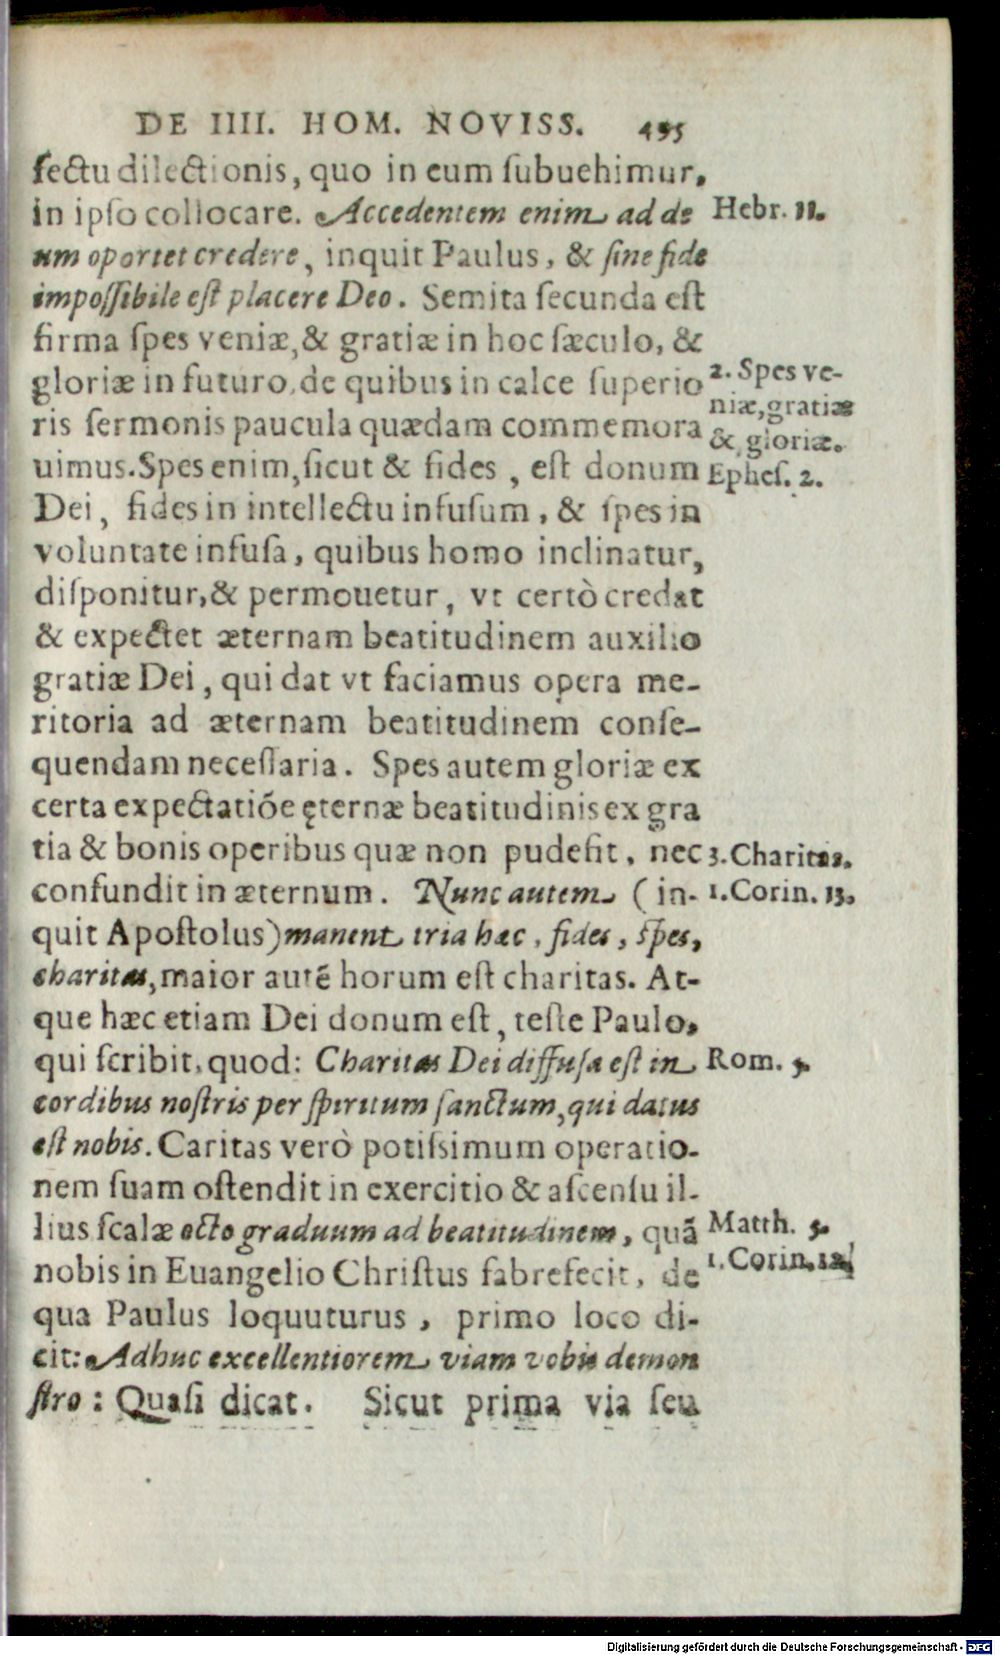 DE IIII. HOM. NOVISS. 495
fectu dilectionis, quo in eum ſubuehimur,
in ipſo collocare. Accedentem enim ad de
Hebr. 11.
um oportet credere, inquit Paulus, & ſine fide
impoſſibile eſt placere Deo. Semita ſecunda eſt
firma ſpes veniæ, & gratiæ in hoc ſæculo, &
gloriæ in futuro, de quibus in calce ſuperio
2. Spes ve-
niæ, gratiæ
& gloriæ.
Epheſ. 2.
ris ſermonis paucula quædam commemora
uimus. Spes enim, ſicut & fides, eſt donum
Dei, fides in intellectu infuſum, & ſpes in
voluntate infuſa, quibus homo inclinatur,
diſponitur, & permouetur, vt certò credat
& expectet æternam beatitudinem auxilio
gratiæ Dei, qui dat vt faciamus opera me-
ritoria ad æternam beatitudinem conſe-
quendam neceſſaria. Spes autem gloriæ ex
certa expectatiōe ęternæ beatitudinis ex gra
tia & bonis operibus quæ non pudefit, nec
3. Charitas.
confundit in æternum. Nunc autem (in-
1. Corin. 13.
quit Apoſtolus) manent tria hæc, fides, ſpes,
charitas, maior autē horum eſt charitas. At-
que hæc etiam Dei donum eſt, teſte Paulo,
qui ſcribit, quod: Charitas Dei diffuſa eſt in
Rom. 5.
cordibus noſtris per ſpiritum ſanctum, qui datus
eſt nobis. Caritas verò potiſsimum operatio-
nem ſuam oſtendit in exercitio & aſcenſu il-
lius ſcalæ octo graduum ad beatitudinem, quā
Matth. 5.
nobis in Euangelio Chriſtus fabrefecit, de
1. Corin. 12.
qua Paulus loquuturus, primo loco di-
cit: Adhuc excellentiorem viam vobis demon
ſtro: Quaſi dicat. Sicut prima via ſeu
Digitalisierung gefördert durch die Deutsche Forschungsgemeinschaft - DFG